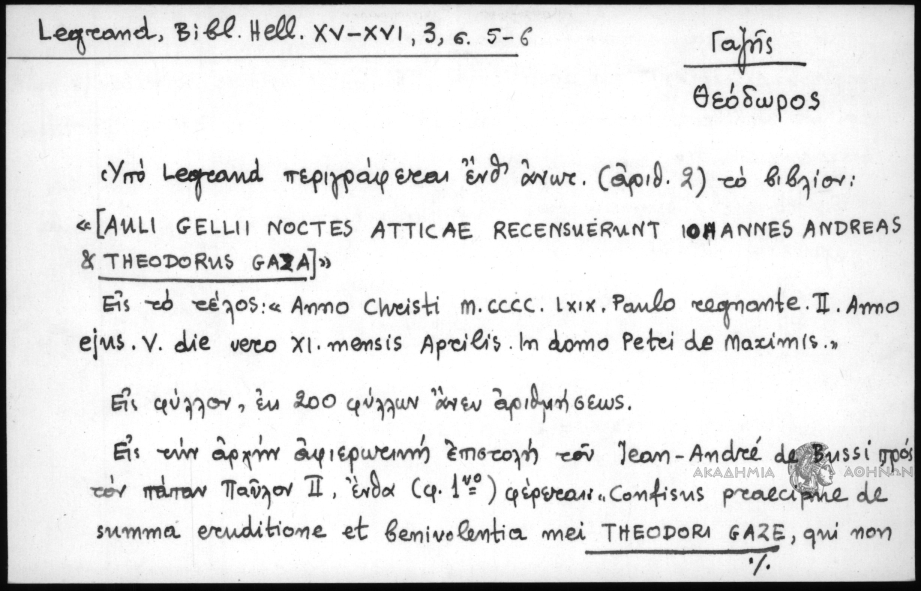 Legrand, Bibl. Hell. XV-XVI, 3, σ. 5-6
Γαζῆς
Θεόδωρος
Ὑπό Legrand περιγράφεται ἔνθ' ἄνωτ. (ἀριθ. 2) τό βιβλίον:
«[AULI GELLII NOCTES ATTICAE RECENSUERUNT IOHANNES ANDREAS
& THEODORUS GAZA]»
Εἰς τό τέλος: « Anno Christi M.CCCC. LXIX. Paulo regnante. II. Anno
ejus. V. die vero XI. mensis Aprilis. In domo Petri de Maximis.»
Εἰς φύλλον, ἐκ 200 φύλλων ἄνευ ἀριθμήσεως.
Εἰς τήν ἀρχήν ἀφιερωτική ἐπιστολή τοῦ Jean-André de Bussi πρός
τόν πάπαν Παῦλον II, ἔνθα (φ. 1νο) φέρεται: «Confisus praecipue de
summa eruditione et benivolentia mei THEODORI GAZE, qui non
./.
ΑΚΑΔΗΜΙΑ ΑΘΗΝΩΝ